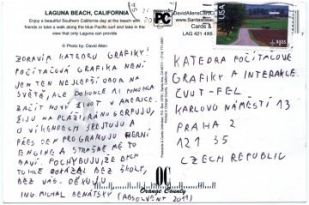 LAGUNA BEACH, CALIFORNIA
Enjoy a beautiful Southern California day at the beach with
friends or take a walk along the blue Pacific surf and take in the
view that only Laguna can provide
© Photo by: David Allen
PC
LAG 421 4X6
ZDRAVÍM KATEDRU GRAFIKY!
POČÍTAČOVÁ GRAFIKA NENÍ
JEN TEN NEJLEPŠÍ OBOR NA
SVĚTĚ, ALE DOKONCE MI UMOŽNILA
ZAČÍT NOVÝ ŽIVOT V AMERICE.
ŽIJU NA PLÁŽI, RÁNO SURFUJU,
O VÍKENDECH CESTUJU A
PŘES DEN PROGRAMUJU HERNÍ
ENGINE A STRAŠNĚ MĚ TO
BAVÍ. POCHYBUJU, ŽE BYCH
TOHLE DOKÁZAL BEZ ŠKOLY,
BEZ VÁS. DĚKUJU
ING. MICHAL BENÁTSKÝ (ABSOLVENT 2011)
KATEDRA POČÍTAČOVÉ
GRAFIKY A INTERAKCE
ČVUT-FEL
KARLOVO NÁMĚSTÍ 13
PRAHA 2
121 35
CZECH REPUBLIC
OC
Orange County